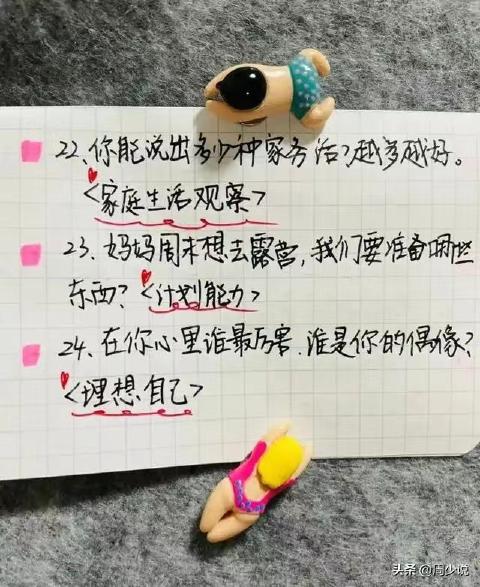 22、你能说出多少种家务活?越多越好。
<家庭生活观察>
23、妈妈周末想去露营,我们要准备哪些
东西?<计划能力>
24、在你心里谁最厉害、谁是你的偶像?
<理想自己>
头条 @周少说